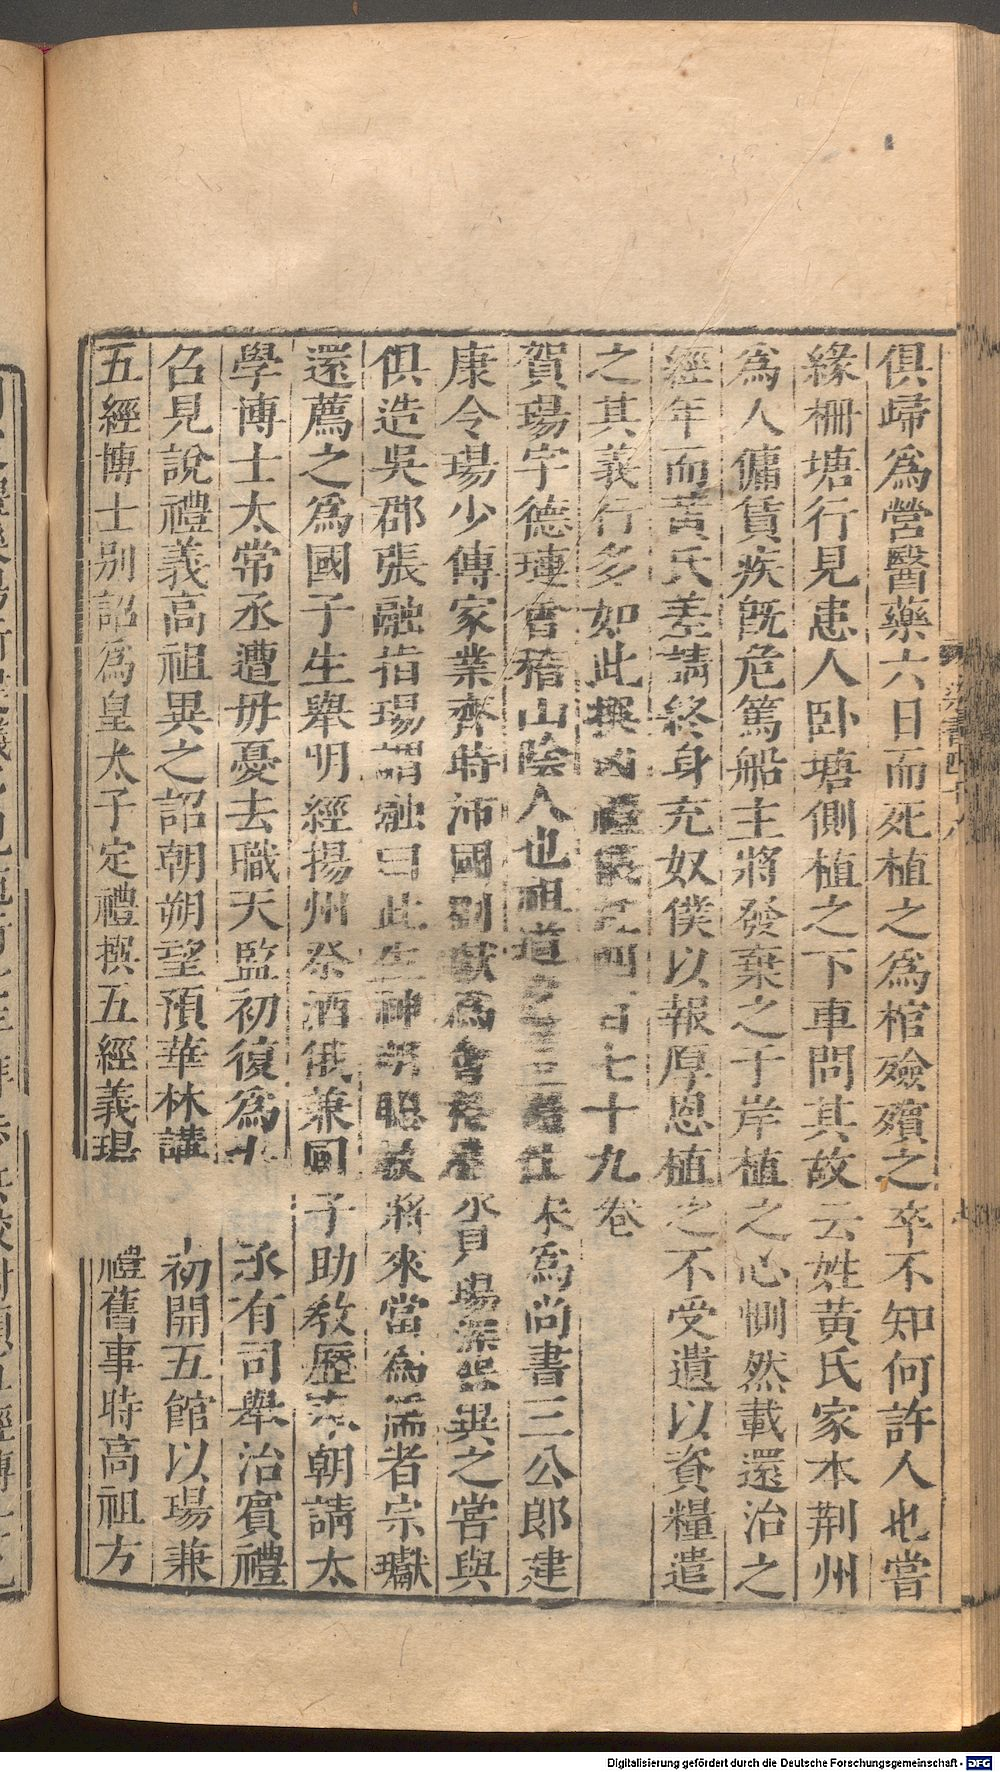 俱歸爲營醫藥六日而死植之爲棺殮殯之卒不知何許人也嘗
緣柵塘行見患人卧塘側植之下車問其故云姓黃氏家本荆州
爲人傭賃疾旣危篤船主將發棄之于岸植之心惻然載還治之
經年而黃氏差請終身充奴僕以報厚恩植之不受遺以資糧遣
之其義行多如此撰凶禮儀注四百七十九卷
賀瑒字德璉會稽山陰人也祖道力善三禮仕宋爲尚書三公郎建
康令瑒少傳家業齊時沛國劉瓛爲會稽府丞見瑒深器異之嘗與
俱造吳郡張融指瑒謂融曰此生神明聰敏將來當爲儒者宗瓛
還薦之爲國子生舉明經揚州祭酒俄兼國子助敎歷奉朝請太
學博士太常丞遭毋憂去職天監初復爲太常丞有司舉治賓禮
召見說禮義高祖異之詔朝朔望預華林講 初開五館以瑒兼
五經博士别詔爲皇太子定禮撰五經義瑒 禮舊事時高祖方
梁書四十八
Digitalisierung gefördert durch die Deutsche Forschungsgemeinschaft - DFG